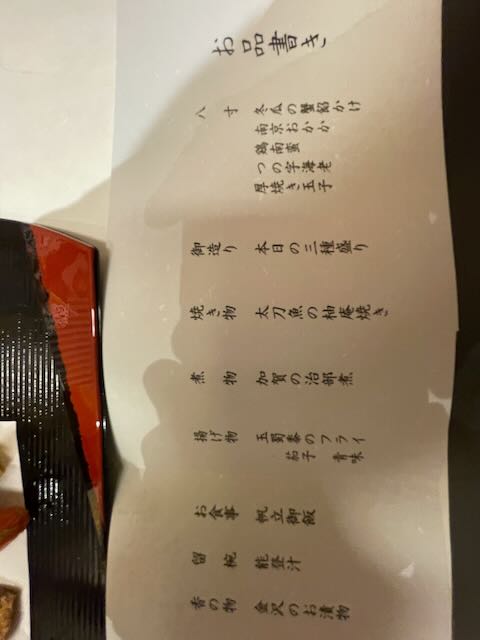 お品書き
八寸 冬瓜の蟹餡かけ
南京おかか
鶏南蛮
つの字海老
厚焼き玉子
御造り 本日の三種盛り
焼き物 太刀魚の柚庵焼き
煮物 加賀の治部煮
揚げ物 玉蜀黍のフライ
茄子 青味
お食事 帆立御飯
留椀 能登汁
香の物 金沢のお漬物